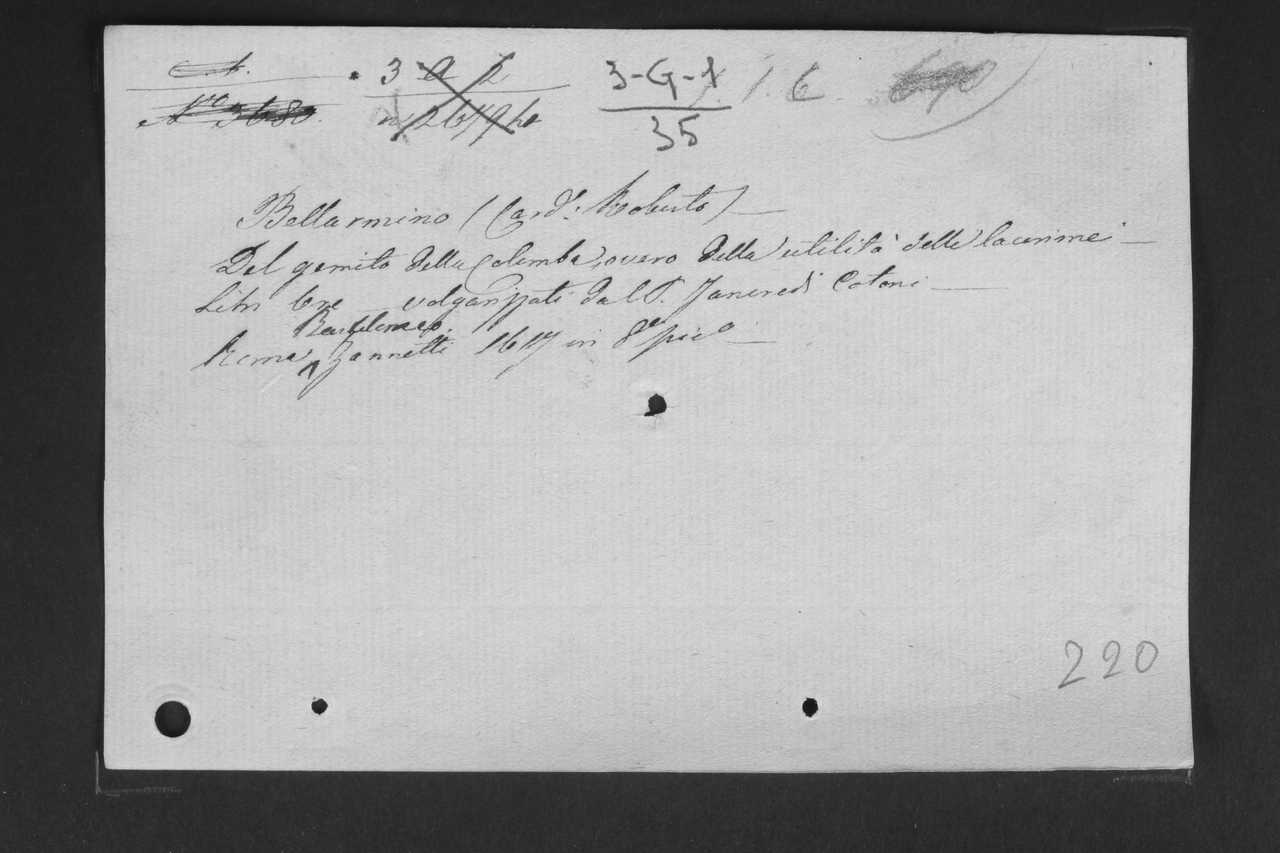 3 a 2 3-G-1 1. 6.
Nro 3680. 35
Bellarmino (Card.l Roberto) —
Del gemito della Colomba, overo della utilità delle lacrime —
Libri tre volgarizzati dal P. Tancredi Cotoni —
Bartolomeo
Roma, Zannetti 1617 in 8vo picco —
220